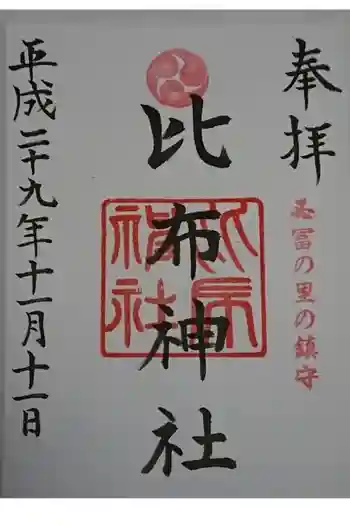 奉拝
冨の里の鎮守
比布神社
神社
平成二十九年十一月十一日